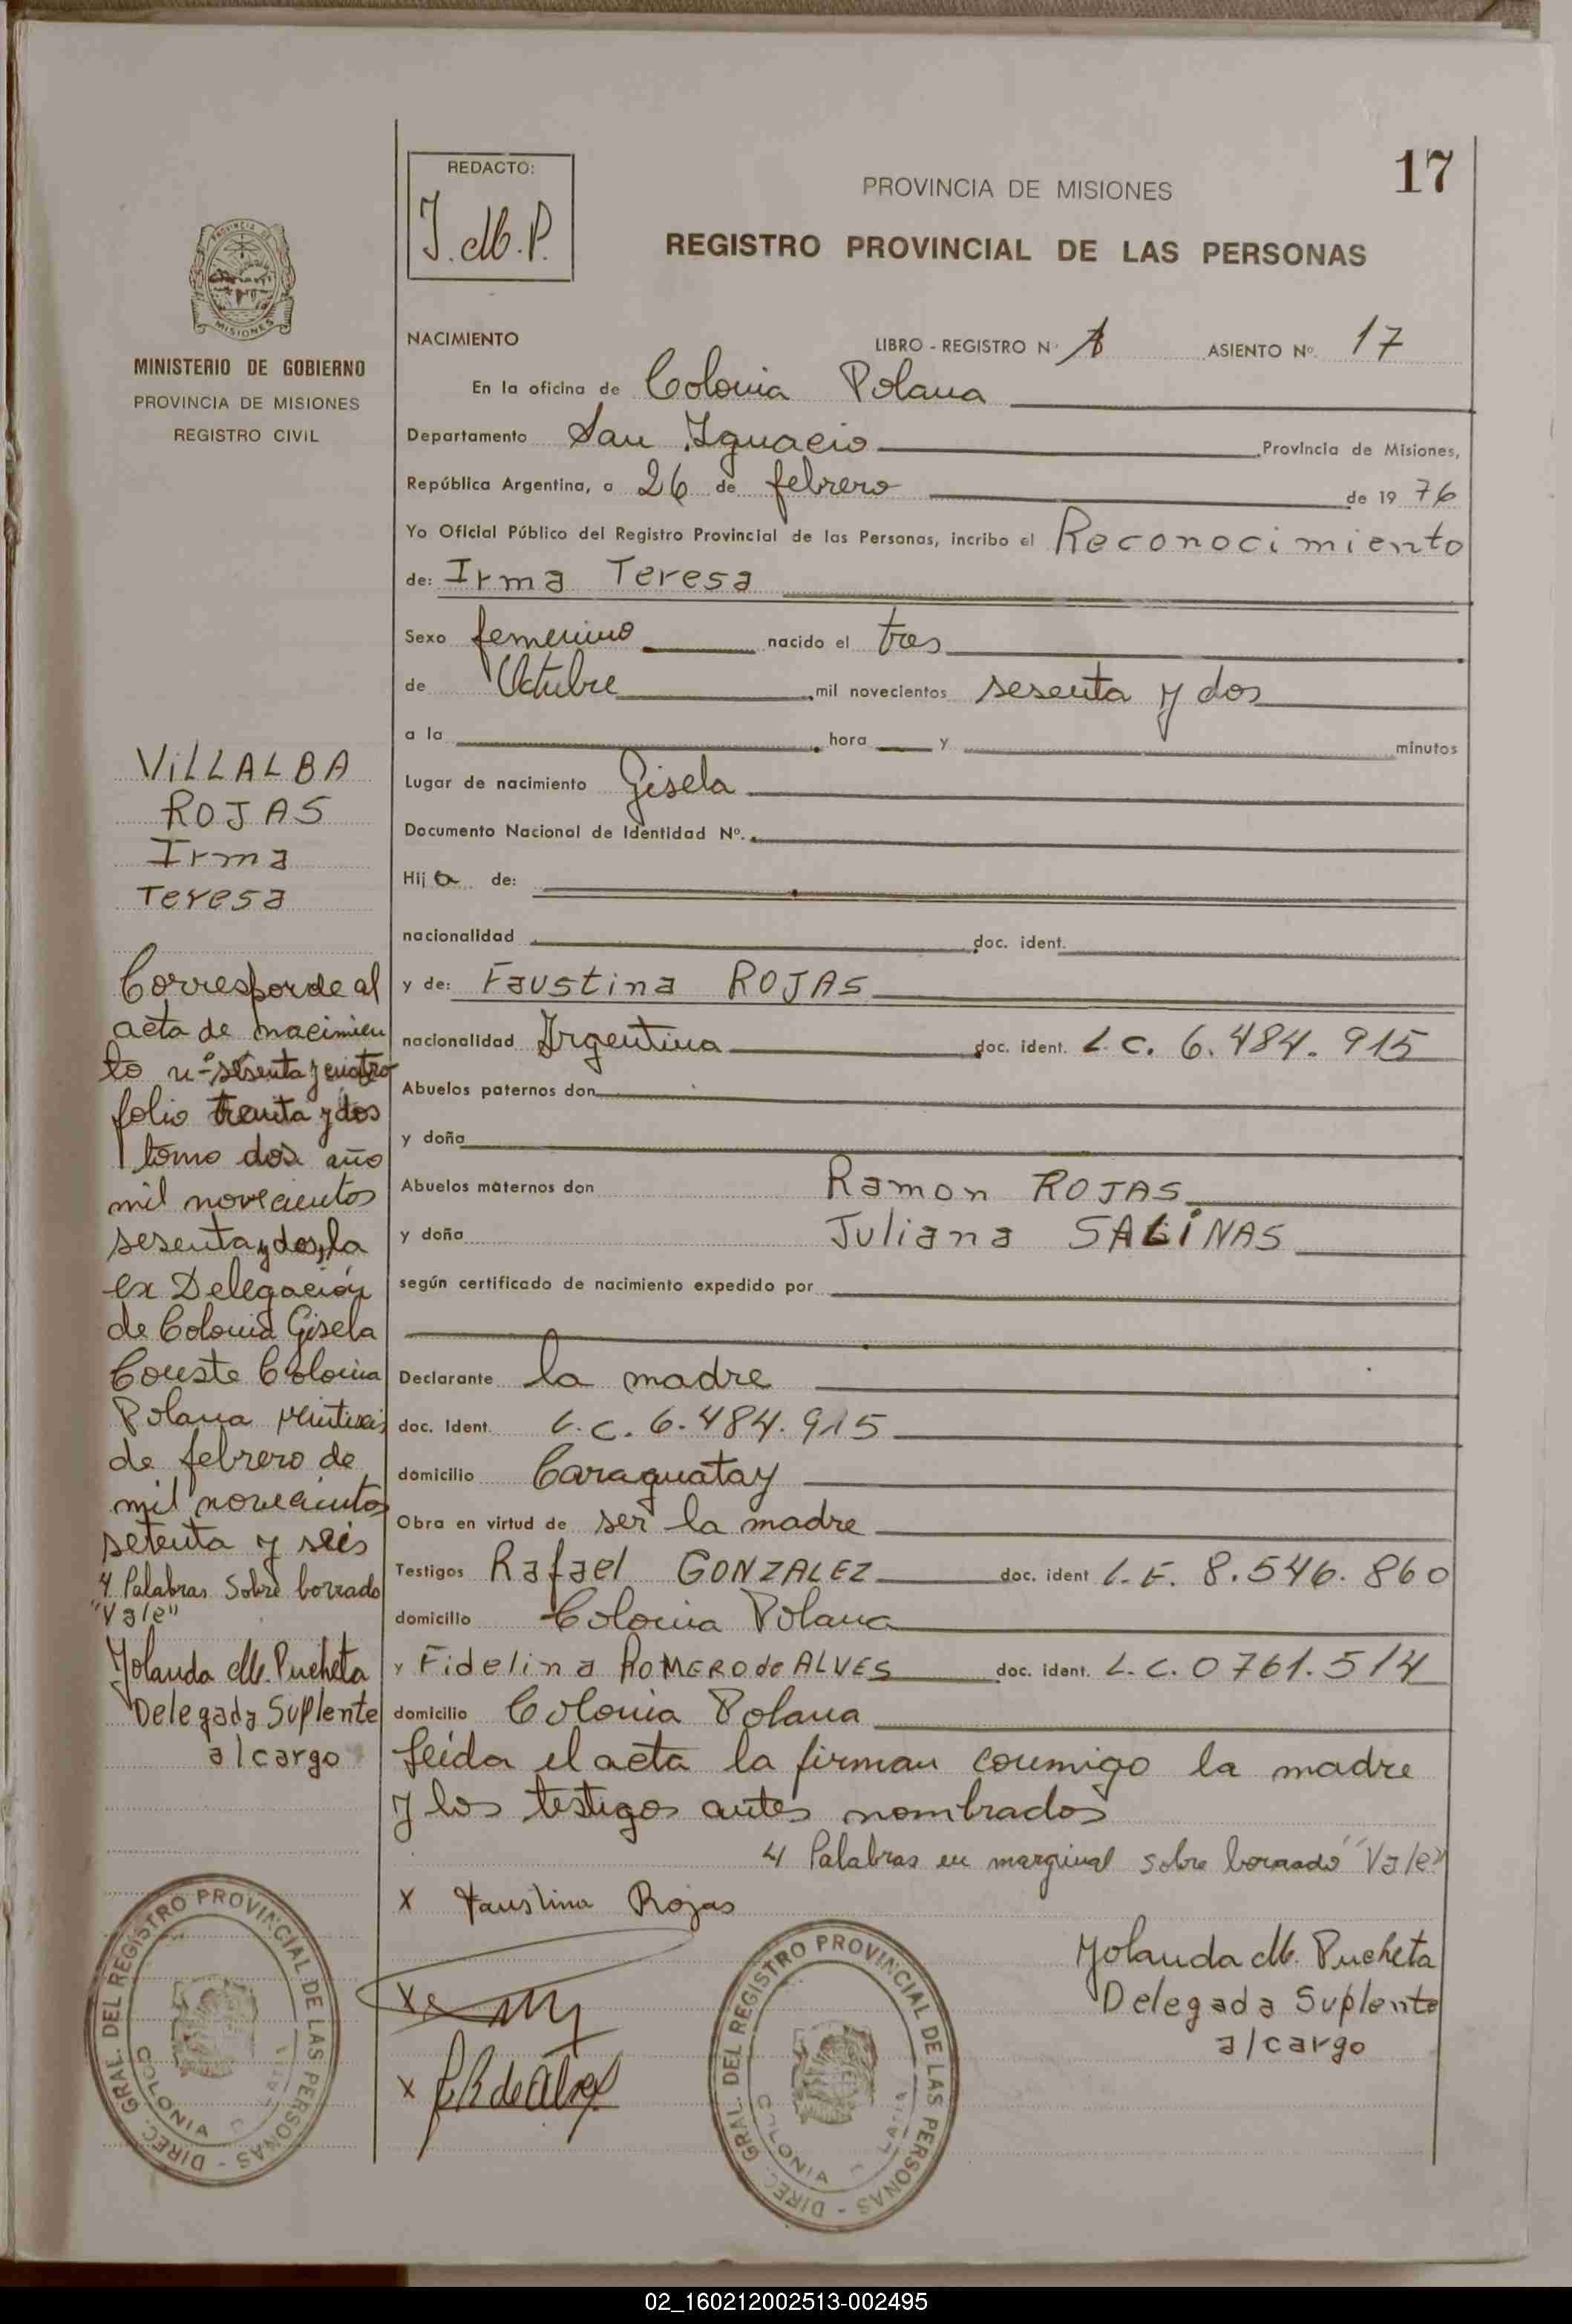 17
REDACTO:
J. M. P.
PROVINCIA DE MISIONES
REGISTRO PROVINCIAL DE LAS PERSONAS
MISIONES
MINISTERIO DE GOBIERNO
PROVINCIA DE MISIONES
REGISTRO CIVIL
NACIMIENTO LIBRO - REGISTRO Nº ASIENTO Nº 17
En la oficina de Colonia Polana
Departamento San Ignacio Provincia de Misiones,
República Argentina, a 26 de febrero de 19 76
Yo Oficial Público del Registro Provincial de las Personas, incribo el Reconocimiento
de: Irma Teresa
Sexo femenino nacido el tres
de Octubre mil novecientos sesenta y dos
a la hora y minutos
Lugar de nacimiento Gisela
Documento Nacional de Identidad Nº.
Hij a de:
nacionalidad doc. ident.
y de: Faustina ROJAS
nacionalidad Argentina doc. ident. L.C. 6.484.915
Abuelos paternos don
y doña
Abuelos maternos don Ramon ROJAS
y doña Juliana SALINAS
según certificado de nacimiento expedido por
Declarante la madre
doc. Ident. L.C. 6.484.915
domicilio Caraguatay
Obra en virtud de ser la madre
Testigos Rafael GONZALEZ doc. ident L.E. 8.546.860
domicilio Colonia Polana
y Fidelina ROMERO de ALVES doc. ident. L.C. 0761.514
domicilio Colonia Polana
Leída el acta la firman conmigo la madre
y los testigos antes nombrados
4 Palabras en marginal sobre borrado "Vale"
X Faustina Rojas
X
X F R de Alves
Yolanda M. Pucheta
Delegada Suplente
a/cargo
VILLALBA
ROJAS
Irma
Teresa
Corresponde al
acta de nacimien
to nº sesenta y cuatro
folio treinta y dos
tomo dos año
mil novecientos
sesenta y dos, la
ex Delegación
de Colonia Gisela
Conste Colonia
Polana veintiseis
de febrero de
mil novecientos
setenta y seis
4 Palabras sobre borrado
"Vale"
Yolanda M. Pucheta
Delegada Suplente
a/cargo
DIREC. GRAL. DEL REGISTRO PROVINCIAL DE LAS PERSONAS -
COLONIA
DIREC. GRAL. DEL REGISTRO PROVINCIAL DE LAS PERSONAS -
COLONIA
02_160212002513-002495